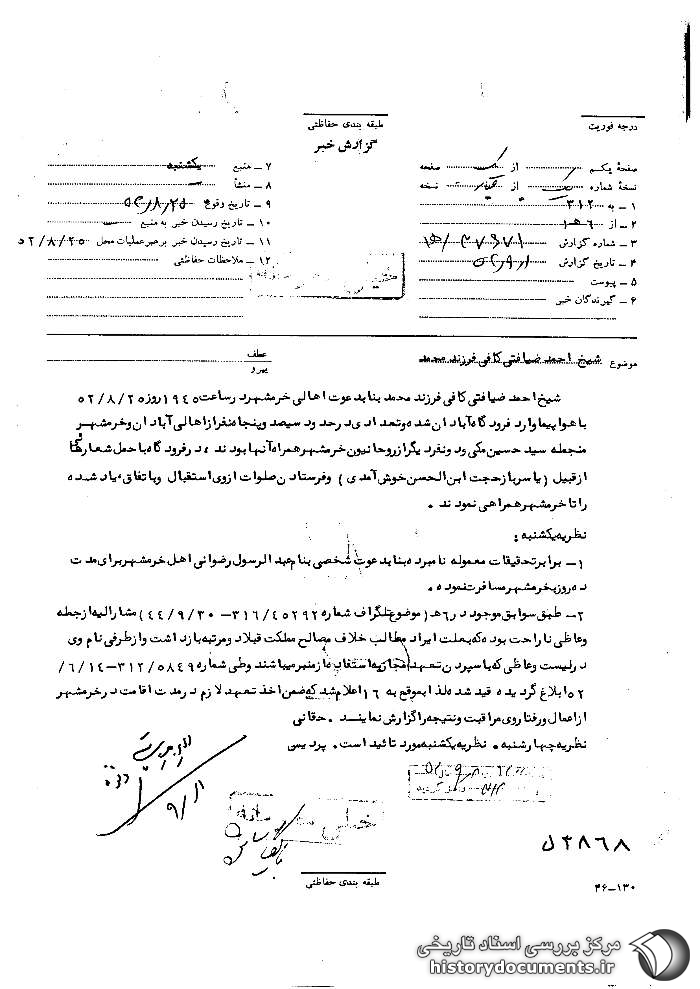 درجه فوریت
طبقه بندی حفاظتی
گزارش خبر
صفحهٔ یکم از یک صفحه
نسخهٔ شماره یک از نسخه
۱ ـ به ۳۱۲
۲ ـ از ۶ هـ ۱
۳ ـ شماره گزارش
۴ ـ تاریخ گزارش
۵ ـ پیوست
۶ ـ گیرندگان خبر
۷ ـ منبع یکشنبه
۸ ـ منشأ
۹ ـ تاریخ وقوع ۵۲/۸/۲۵
۱۰ ـ تاریخ رسیدن خبر به منبع
۱۱ ـ تاریخ رسیدن خبر برهبر عملیات محل ۵۲/۸/۲۵
۱۲ ـ ملاحظات حفاظتی
موضوع شیخ احمد ضیافتی کافی فرزند محمد
عطف
پیرو
شیخ احمد ضیافتی کافی فرزند محمد بنا بدعوت اهالی خرمشهر در ساعت ۱۹۴۵ روز ۵۲/۸/۲۵
با هواپیما وارد فرودگاه آبادان شده و تعدادی در حدود سیصد و پنجاه نفر از اهالی آبادان و خرمشهر
منجمله سید حسین مکی و دو نفر دیگر از روحانیون خرمشهر همراه آنها بودند ، در فرودگاه با حمل شعارهائی
از قبیل ( یا سرباز حجت ابن الحسن خوش آمدی ) و فرستادن صلوات از وی استقبال و باتفاق، یاد شده
را تا خرمشهر همراهی نمودند .
نظریه یکشنبه :
۱ـ برابر تحقیقات معموله نامبرده بنا بدعوت شخصی بنام عبدالرسول رضوانی اهل خرمشهر برای مدت
ده روز بخرمشهر مسافرت نموده .
۲ـ طبق سوابق موجود در ۶ هـ ( موضوع تلگراف شماره ۳۱۶/۴۵۲۹۲ ـ ۴۴/۹/۳۰ ) مشارالیه از جمله
وعاظی ناراحت بوده که بعلت ایراد مطالب خلاف مصالح مملکت قبلا دو مرتبه بازداشت و از طرفی نام وی
در لیست وعاظی که با سپردن تعهد مجاز به استفاده از منبر میباشند و طی شماره ۳۱۲/۵۸۴۹ ـ ۶/۱۴/
۵۲ ابلاغ گردیده قید شده لذا بموقع به ۱۶ اعلام شد که ضمن اخذ تعهد لازم در مدت اقامت در خرمشهر
از اعمال و رفتار وی مراقبت و نتیجه را گزارش نمایند . حقانی
نظریه چهارشنبه . نظریه یکشنبه مورد تائید است . پردیس
خیلی محرمانه
۵۳۸۶۸
طبقه بندی حفاظتی
۴۶ـ۱۳۰
مرکز بررسی اسناد تاریخی
historydocuments.ir